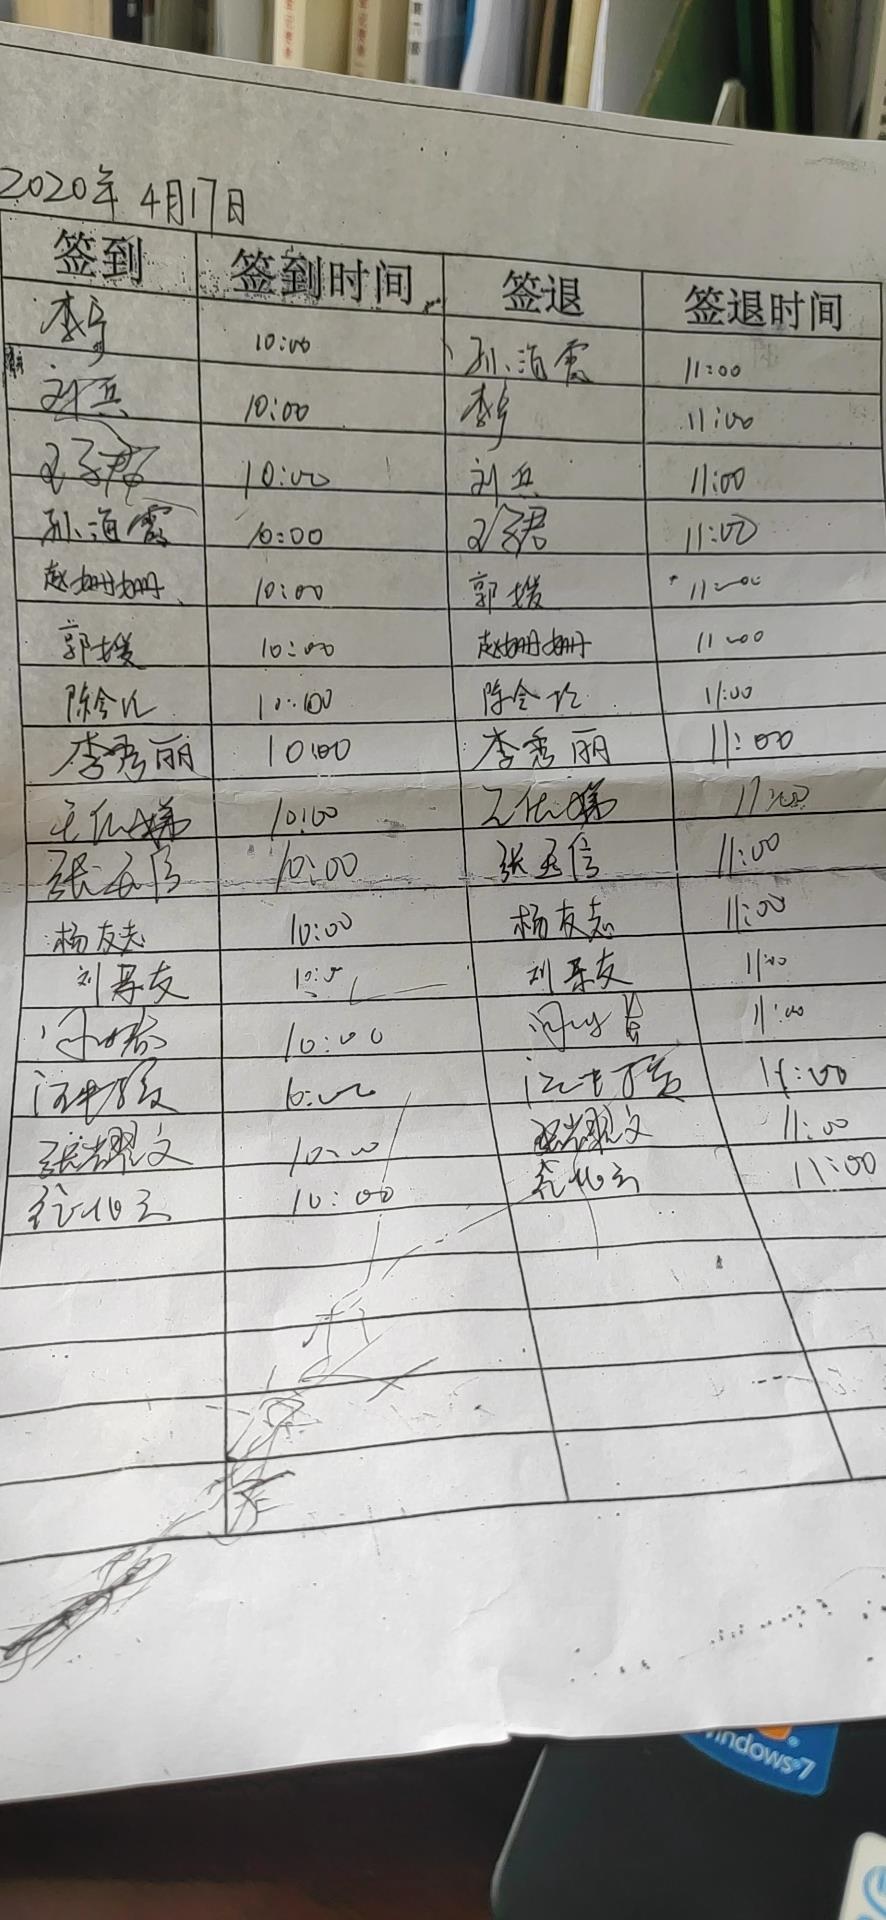 2020年4月17日
签到 签到时间 签退 签退时间
李宁 10:00 孙海霞 11:00
刘兵 10:00 李宁 11:00
王子君 10:00 刘兵 11:00
孙海霞 10:00 王子君 11:00
赵姗姗 10:00 郭媛 11:00
郭媛 10:00 赵姗姗 11:00
陈令 10:00 陈令 11:00
李秀丽 10:00 李秀丽 11:00
10:00 11:00
张玉信 10:00 张玉信 11:00
杨友志 10:00 杨友志 11:00
刘景友 刘景友 11:00
10:00 11:00
汪 10:00 汪 11:00
张耀文 10:00 张耀文 11:00
10:00 11:00
Windows 7